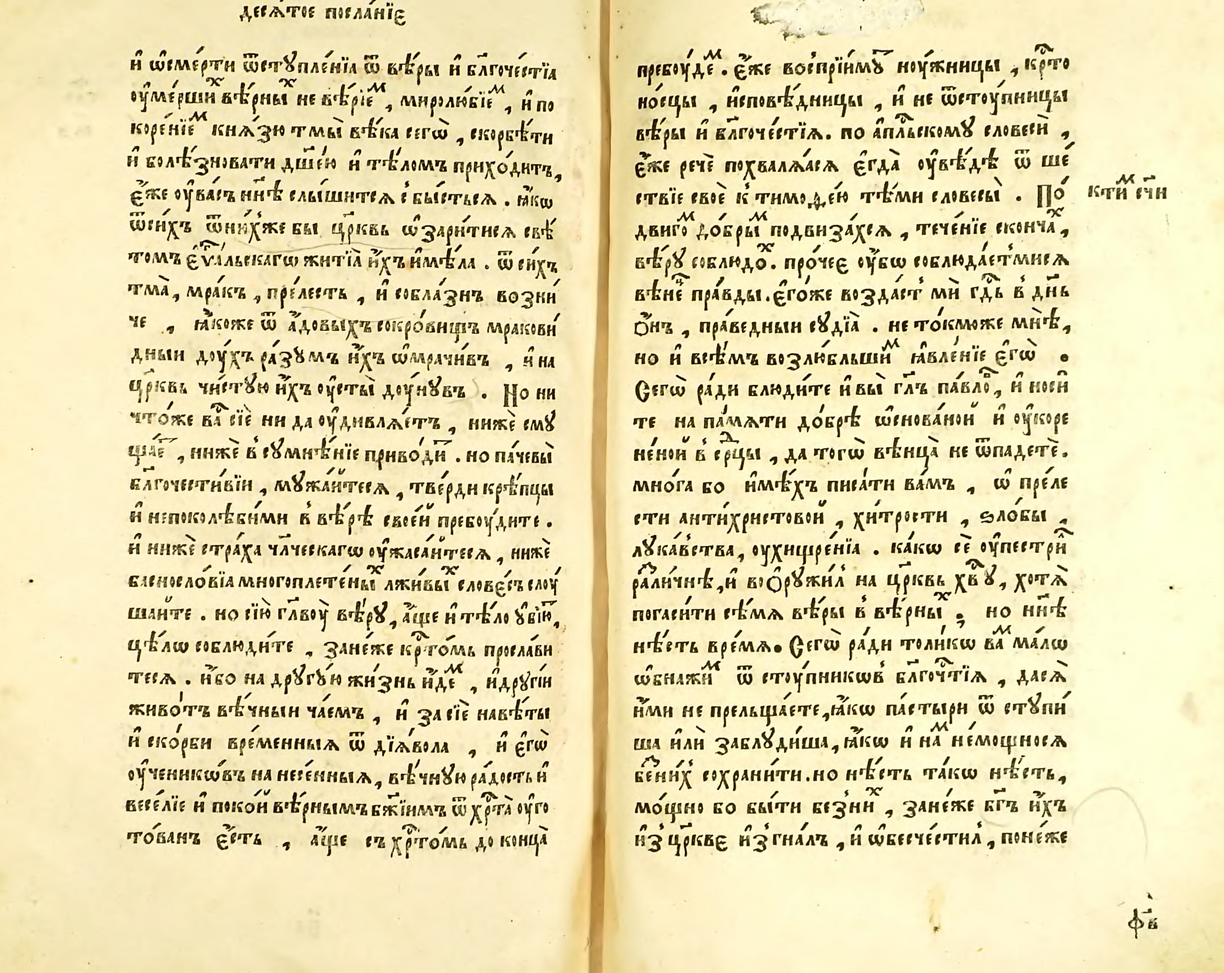 десѧ́тое посла́нїе
и҆ ѡ҆сме́рти ѿстꙋпле́нїѧ ѿ вѣ́ры и҆ бл҃гоче́стїѧ
оу҆ме́ршиⷯ вѣ́рныⷯ не вѣ́рїеⷨ , миролю́бїеⷨ , и҆ по
коре́нїеⷨ кнѧ́зю тмы̀ вѣ́ка сегѡ̀ , скорбѣ́ти
и҆ болѣ́зновати дш҃е́ю и҆ тѣ́ломъ прихо́дитъ,
є҆́же оу҆ва́съ нн҃ѣ слы́шитсѧ с̾ бы́стьсѧ . ꙗ҆́кѡ
ѿси́хъ ѿни́хже бы цр҃квь ѡ҆зари́тисѧ свѣ́
томъ є҆ѵⷢ҇льскагѡ житїѧ̀ и҆́хъ и҆мѣ́ла . ѿ си́хъ
тма̀, мра́къ , пре́лесть , и҆ собла́знъ возни́
че , ꙗ҆́коже ѿ а҆́довыхъ сокро́вищъ мракови́
дныи дꙋ́хъ ра́зꙋмъ и҆́хъ ѡ҆мрачи́въ , и҆ на
цр҃квь чи́стꙋю и҆́хъ оу҆сты̀ доу́нꙋвъ . Но ни
что́же ваⷭ҇ сїѐ ни да оу҆дивлѧ́етъ , нижѐ смꙋ
ща́еⷮ , нижѐ в̾ сꙋмнѣ́нїе приво́диⷮ . но па́чевы̀
бл҃гочести́вїи , мꙋжа́итесѧ , тве́рди крѣ́пцы
и҆ непоколѣ́бими в̾ вѣ́рѣ свое́й пребоу́дите .
и҆ нижѐ стра́ха чл҃ческагѡ оу҆жаса́итесѧ , нижѐ
басносло́вїѧ многоплете́ныⷯ лжи́выⷯ слове́съ слоу́
шаите . но сїю̀ гл҃воу̀ вѣ́рꙋ, а҆́ще и҆ тѣ́ло ѹ҆бїю́ⷮ,
цѣ́лѡ соблюди́те , зане́же крⷭ҇то́мъ просла́ви
тесѧ . и҆́бо на дрꙋгꙋ́ю жи́знь и҆́демⷨ , и҆дрꙋгі́и
живо́тъ вѣ́чныи ча́емъ , и҆ за сїѐ навѣ́ты
и҆ ско́рби вре́менныѧ ѿ дїѧ́вола , и҆ є҆гѡ̀
оу҆ченикѡ́въ на несе́нныѧ, вѣ́чнꙋю ра́дость и҆
весе́лїе и҆ поко́й вѣ́рнымъ бж҃їимъ ѿ хрⷭ҇та̀ оу҆го
то́ванъ є҆́сть , а҆́ще съ хрⷭ҇то́мъ до конца̀
пребоу́деⷨ . є҆́же воспрїи́мꙋⷮ ноу́жницы , крⷭ҇то
но́сцы , и҆сповѣ́дницы , и҆ не ѿстоу́пницы
вѣ́ры и҆ бл҃гоче́стїѧ. по а҆пⷭ҇льскомꙋ словесѝ ,
є҆́же речѐ похвалѧ́ѧсѧ є҆гда̀ оу҆вѣ́дѣ ѿ ше́
ствїе своѐ к̾ тимоѳе́ю тѣ́ми словесы̀ . По́
двигоⷨ до́брыⷨ подвиза́хсѧ , тече́нїе сконча́ⷯ ,
вѣ́рꙋ соблюдо́ⷯ . про́чее оу҆́бѡ соблюда́етмисѧ
вѣне́ⷰ пра́вды. є҆го́же возда́ст̾ мѝ гдⷭ҇ь в̾ дн҃ь
ѻ҆́нъ , пра́ведныи сꙋдїѧ̀ . не то́кможе мнѣ̀,
но и҆ всѣ́мъ возлю́бльшиⷨ ꙗ҆вле́нїе є҆гѡ̀ .
Сегѡ̀ ра́ди блюди́те и҆ вы̀ гл҃ъ па́влоⷡ , и҆ носи́
те на па́мѧти до́брѣ ѡ҆снова́ной и҆ оу҆коре
не́ной в̾ срⷣцы , да тогѡ̀ вѣнца̀ не ѿпадетѐ.
мно́га бо и҆мѣ́хъ писа́ти ва́мъ , ѡ҆ пре́ле
сти а҆нти́христовой , хи́трости , ѕло́бы ,
лꙋка́вства, оухищре́нїѧ . ка́кѡ сѐ оу҆пестрѝ
разли́чнѣ, и҆ воѻрꙋжи́л̾ на цр҃квь хв҃ꙋ, хотѧ̀
погаси́ти сѣ́мѧ вѣ́ры в̾ вѣ́рныⷯ ; но нн҃ѣ
нѣ́сть вре́мѧ. Сегѡ̀ ра́ди толи́кѡ ваⷨ ма́лѡ
ѡ҆бнажи́ⷨ ѿ стоу́пникѡв̾ бл҃гочⷭ҇тїѧ , дасѧ̀
и҆́ми не прельща́ете, ꙗ҆́кѡ па́стыри ѿ стꙋпи́
ша и҆лѝ заблꙋди́ша, ꙗ҆́кѡ и҆ наⷨ не́мощносѧ
бе́них̾ сохрани́ти. но нѣ́сть та́кѡ нѣ́сть,
мо́щно бо бы́ти без̾ни́ⷯ , зане́же бг҃ъ и҆́хъ
и҆з̾ цр҃кве и҆з̾гна́лъ , и҆ ѡ҆бесче́стил̾ , поне́же
ф҃в